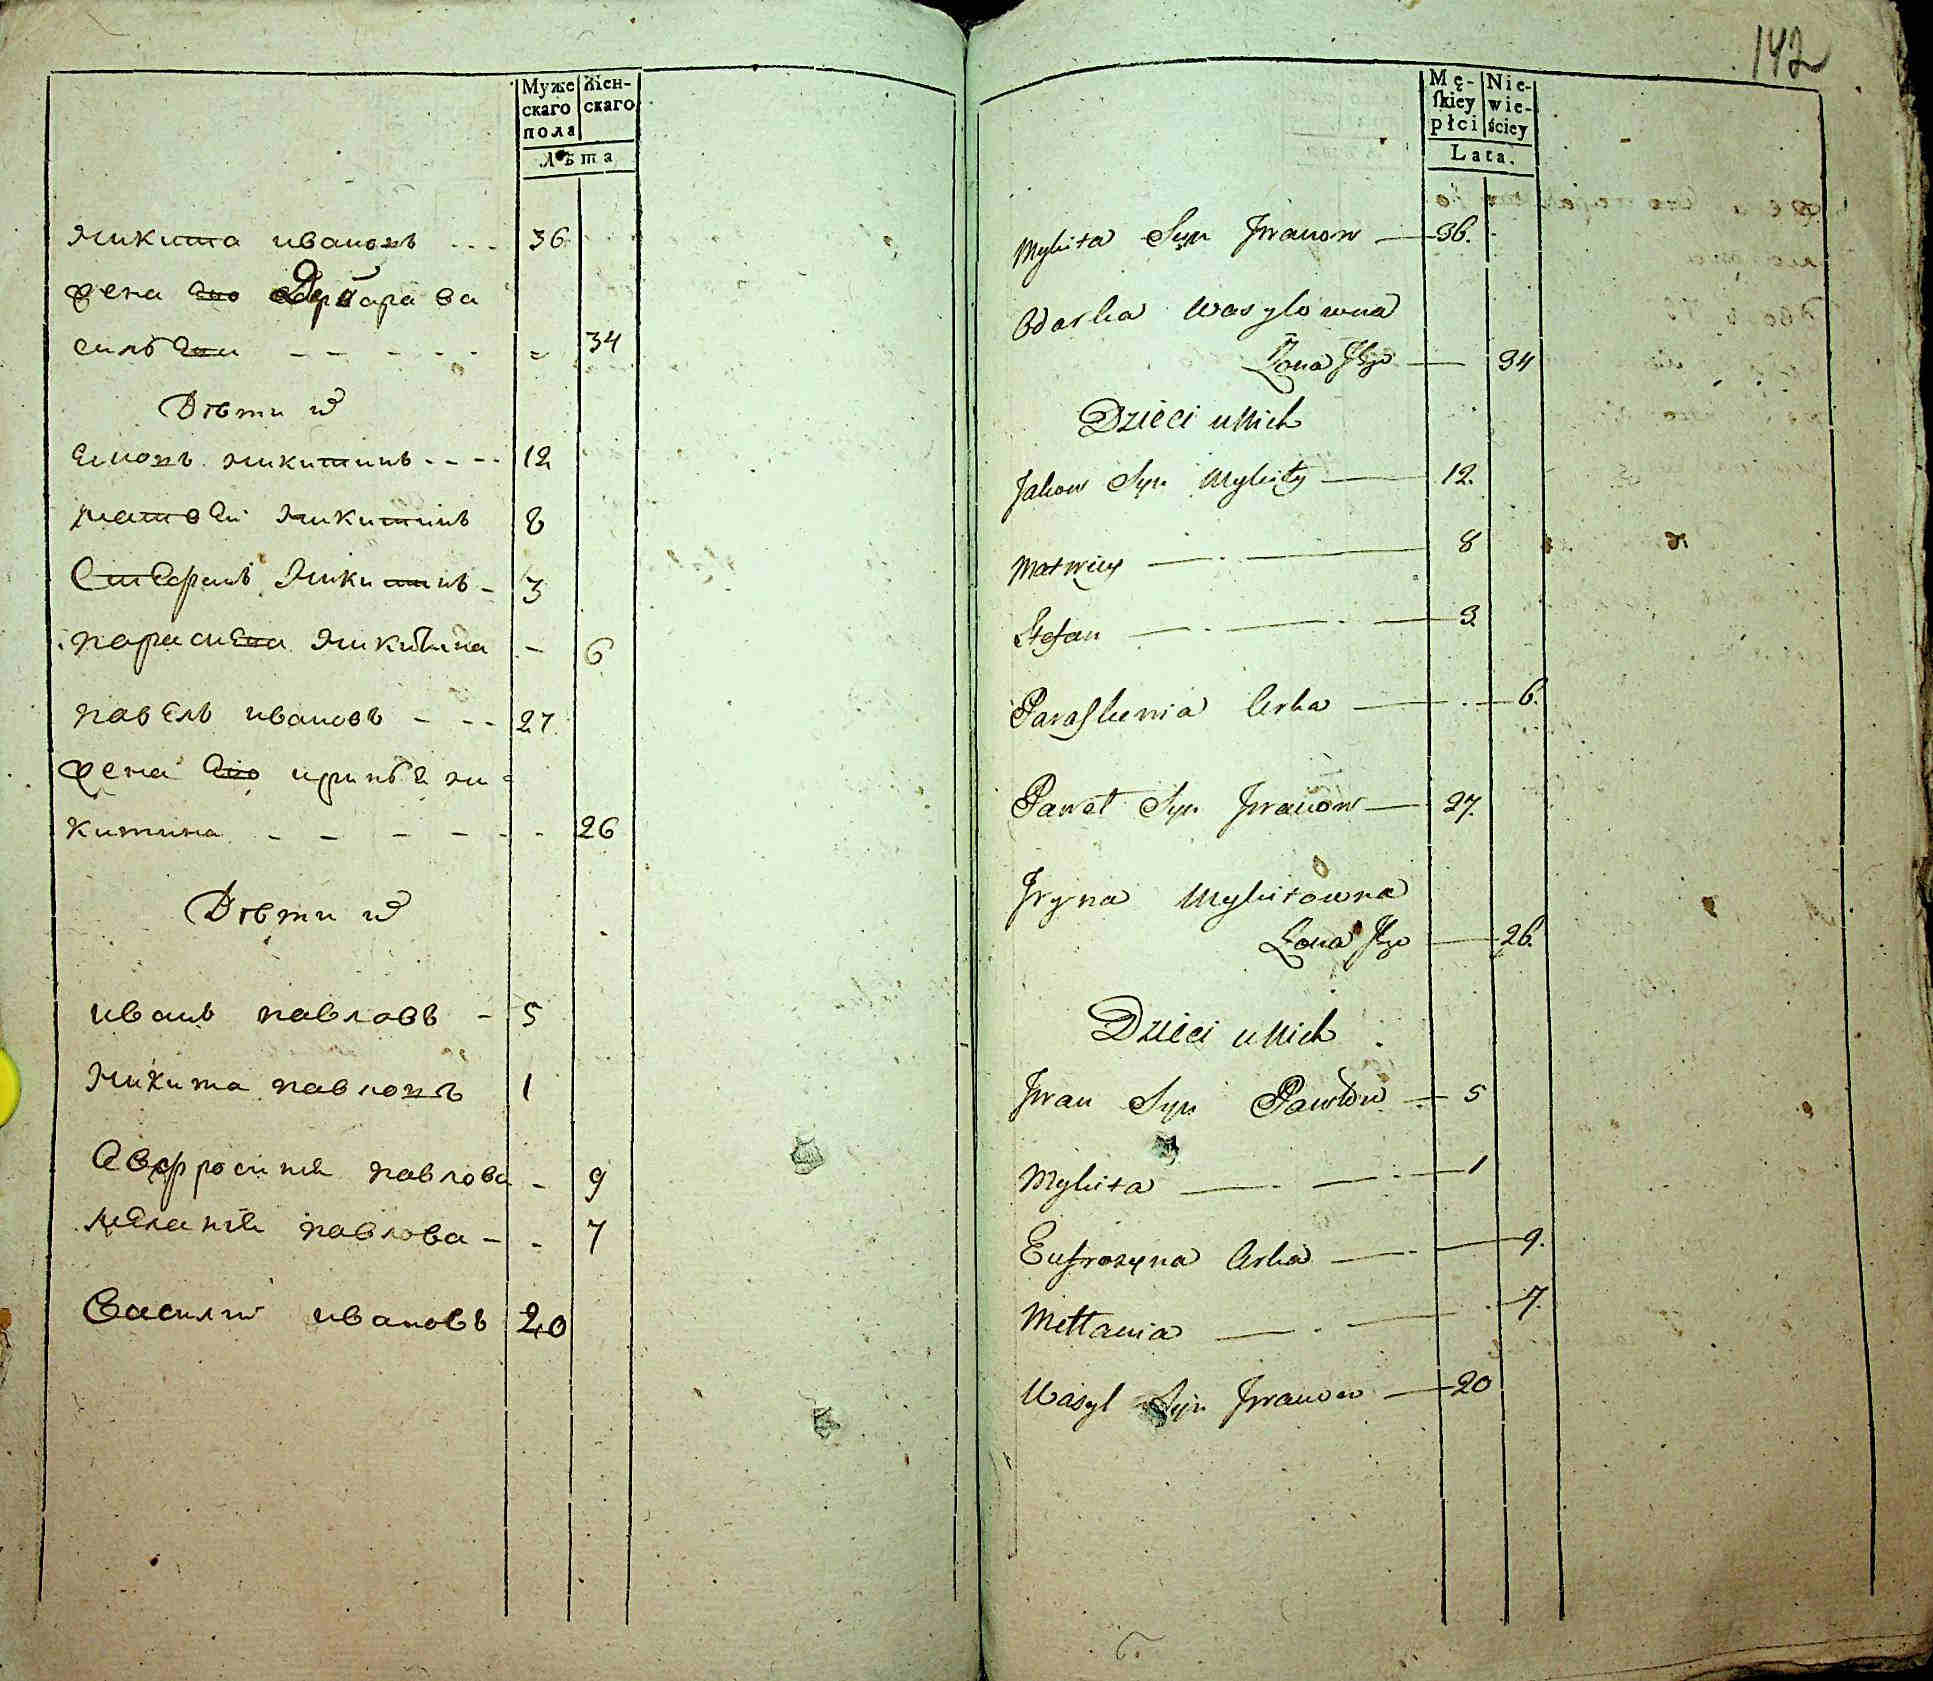 142
Муже Жен-
скаго скаго
пола
лѣта
никита ивановъ 36
жена его Варвара ва
силъева 34
Дѣти их
никитинъ 12
матвей никитинъ 8
Стефанъ никитинъ 3
параскева никитина 6
павелъ ивановъ 27
жена его ирина ни-
китина 26
Дѣти их
иванъ павловъ 5
никита павловъ 1
Евфросиния павлова 9
мелания павлова 7
василий ивановъ 20
Mę- Nie-
skiey wie-
płci ściey
Lata.
Mykita Syn Jwanow 36.
Odarka Wasylowna
Żona Jego 34
Dzieci u Nich
Jakow Syn Mykity 12.
Matwiey 8
Stefan 3
Paraskewia Corka 6.
Paweł Syn Jwanow 27.
Jryna Mykitowna
Żona Jego 26.
Dzieci u Nich
Jwan Syn Pawłow 5
Mykita 1
Eufrozyna Corka 9.
Mełłania 7.
Wasyl Syn Jwanow 20